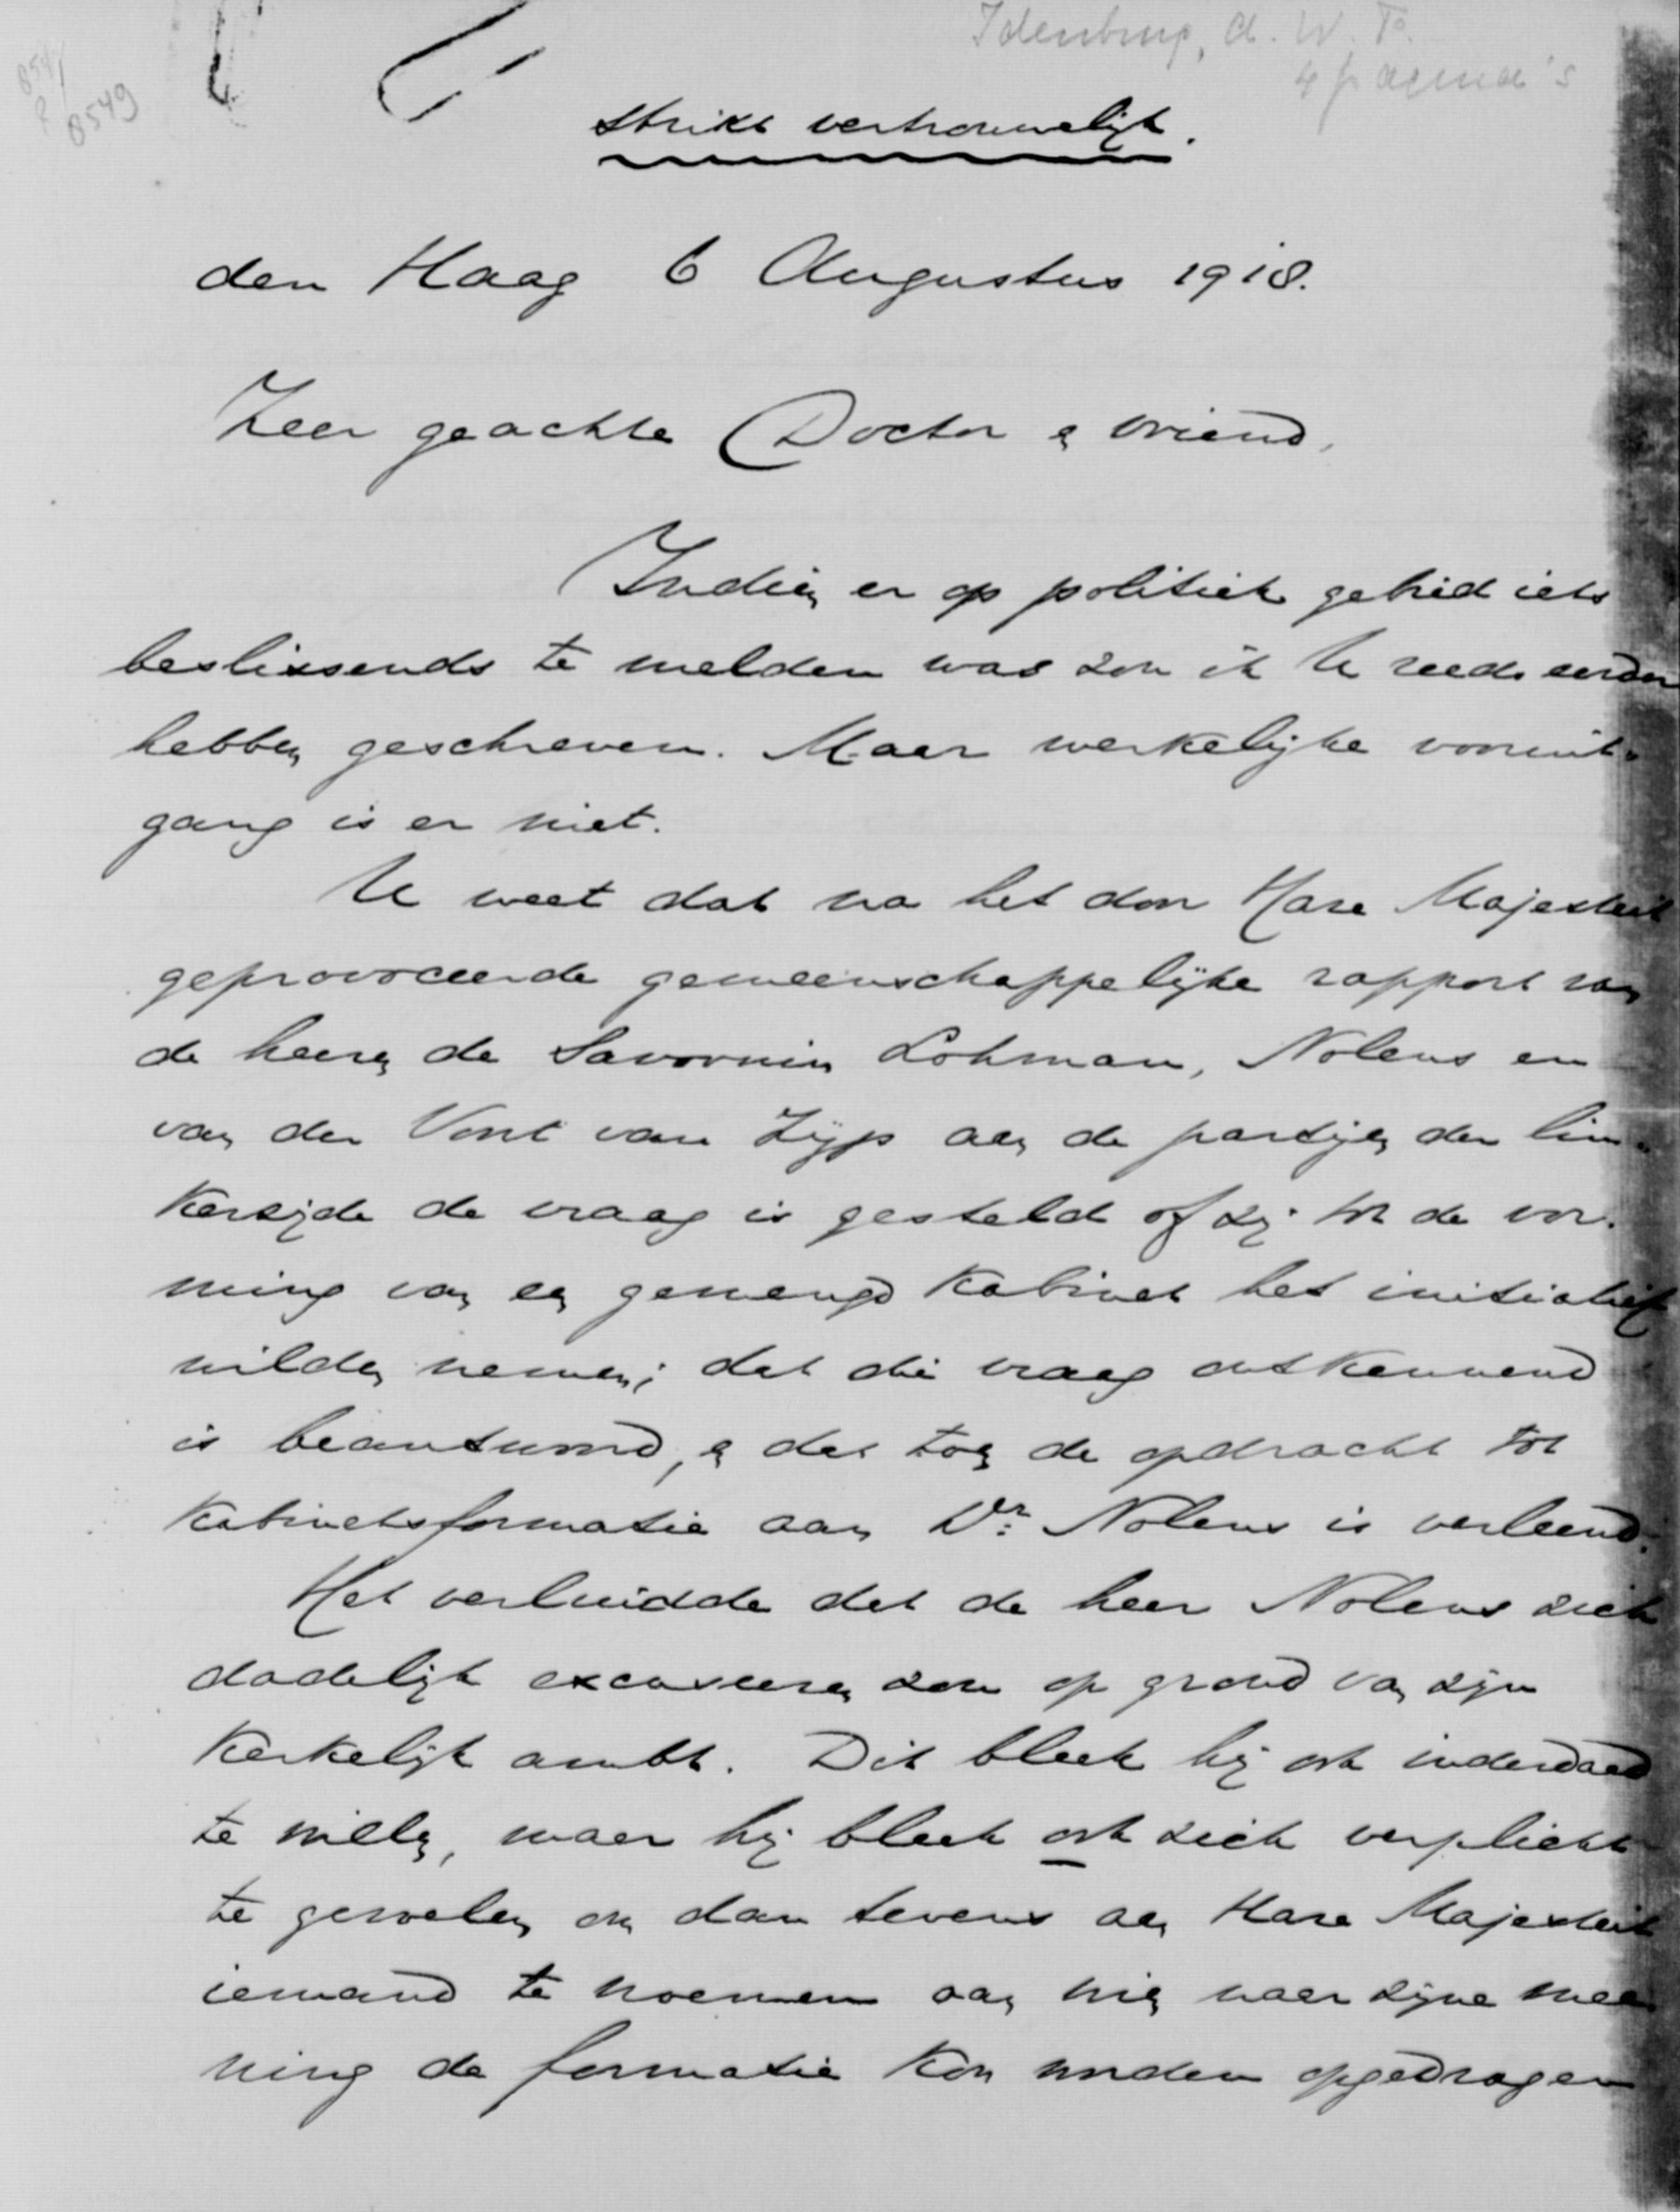 Idenburg, A. W. F.
4 pagina's
8549
strikt vertrouwelijk.
den Haag 6 Augustus 1918.
Zeer geachte Doctor & vriend,
Indien er op politiek gebied iets
beslissends te melden was zou ik U reeds eerder
hebben geschreven. Maar werkelijke vooruit-
gang is er niet.
U weet dat na het door Hare Majesteit
geprovoceerde gemeenschappelijke rapport van
de heeren de Savornin Lohman, Nolens en
van der Voort van Zijp aan de partijen der lin-
kerzijde de vraag is gesteld of zij tot de vor-
ming van een gemengd Kabinet het initiatief
wilden nemen; dat die vraag ontkennend
is beantwoord, & dat toen de opdracht tot
Kabinetsformatie aan Dr. Nolens is verleend.
Het verluidde dat de heer Nolens zich
dadelijk excuseeren zou op grond van zijn
Kerkelijk ambt. Dit bleek hij ook inderdaad
te willen, maar hij bleek ook zich verplicht
te gevoelen om dan tevens aan Hare Majesteit
iemand te noemen aan wien naar zijne mee-
ning de formatie kon worden opgedragen